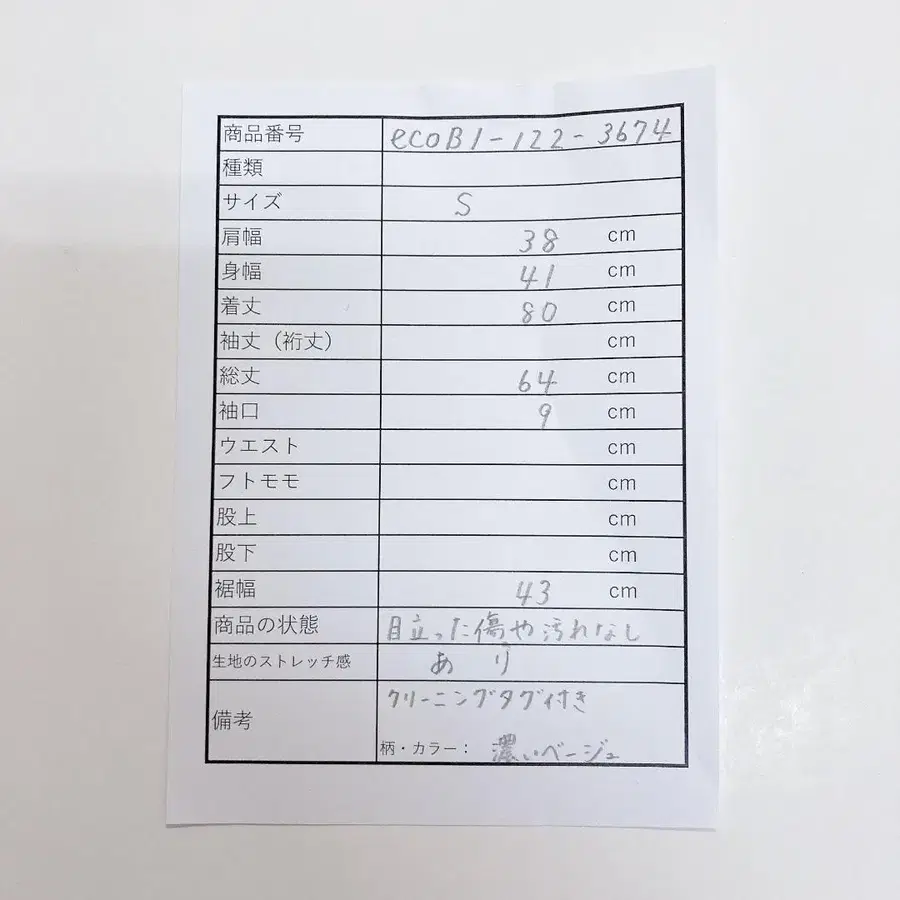 商品番号 ecoB1-122-3674
種類
サイズ S
肩幅 38 cm
身幅 41 cm
着丈 80 cm
袖丈（裄丈） cm
総丈 64 cm
袖口 9 cm
ウエスト cm
フトモモ cm
股上 cm
股下 cm
裾幅 43 cm
商品の状態 目立った傷や汚れなし
生地のストレッチ感 あり
備考 クリーニングタグ付き
柄・カラー： 濃いベージュ